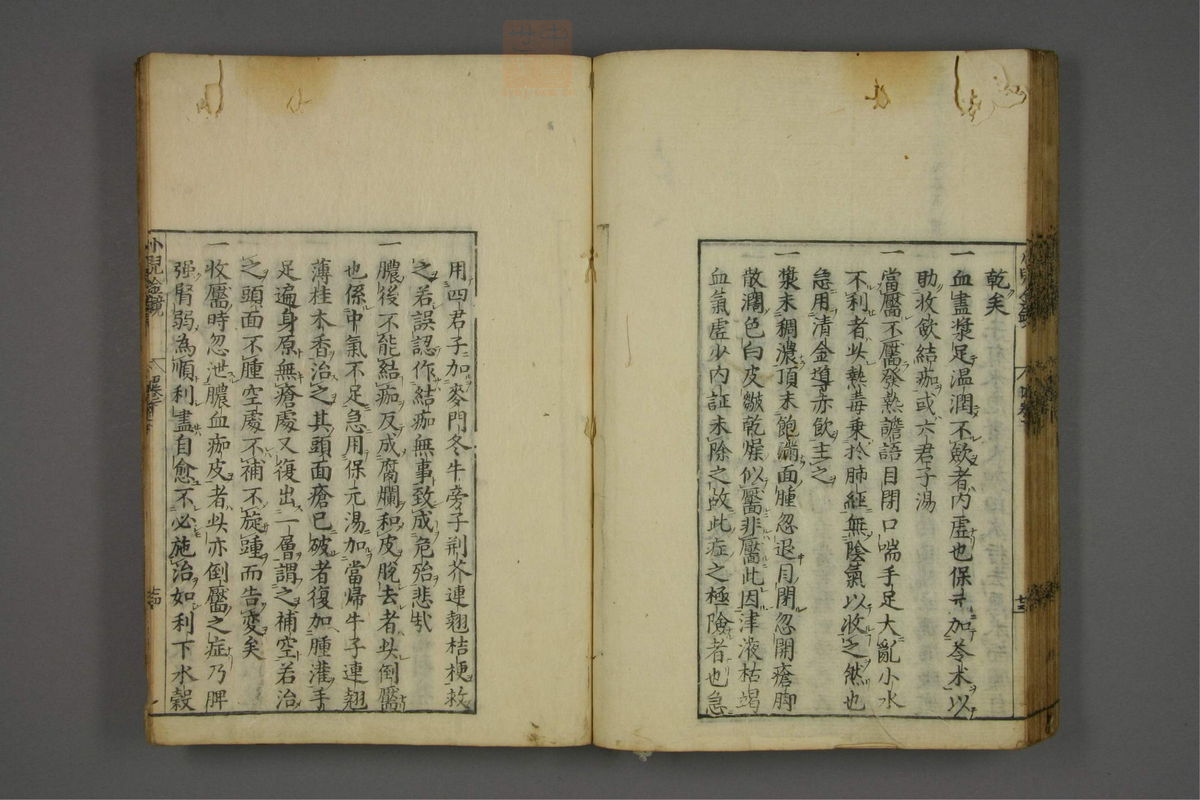 乾矣
一血盡漿足温潤不斂者內虛也保元加苓朮以
助收斂結痂或六君子湯
一當靨不靨發熱譫語目閉口喘手足大亂小水
不利者此熱毒乗於肺經無陰氣以收之然也
急用清金導赤飲主之
一漿未稠濃頂未飽滿面腫忽退目閉忽開瘡脚
散濶色白皮皺乾燥似靨非靨此因津液枯竭
血氣虛少內証未除之故此症之極險者也急
用四君子加麥門冬牛旁子荊芥連翹桔梗救
之若誤認作結痂無事致成危殆悲哉
一膿後不能結痂反成腐爛和皮脫去者此倒靨
也係中氣不足急用保元湯加當帰牛子連翹
薄桂木香治之其頭面瘡已破者復加腫灌手
足遍身原無瘡處又復出一層謂之補空若治
之頭面不腫空處不補不旋踵而告變矣
一收靨時忽泄膿血痂皮者此亦倒靨之症乃脾
强腎弱為順利盡自愈不必施治如利下水穀
小兒金鏡